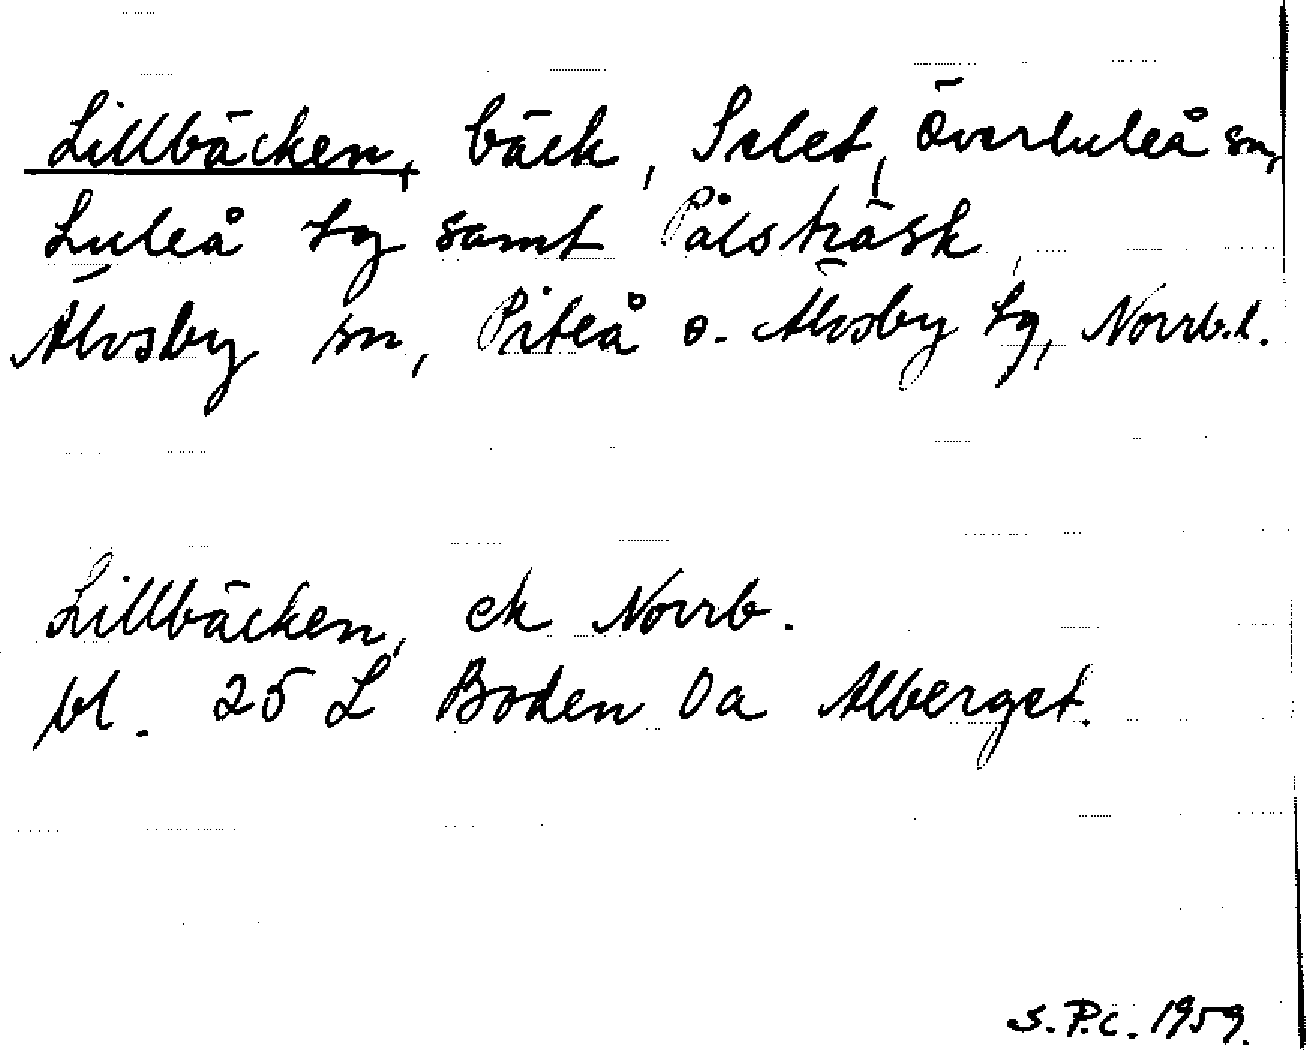 Lillbäcken, bäck, Selet, Överluleå sn,
Luleå tg samt Pålsträsk,
Älvsby sn, Piteå o. Älvsby tg, Norrb.l.
Lillbäcken, ek Norrb.
bl. 25 L Boden 0a Alberget.
S.P.c. 1959.